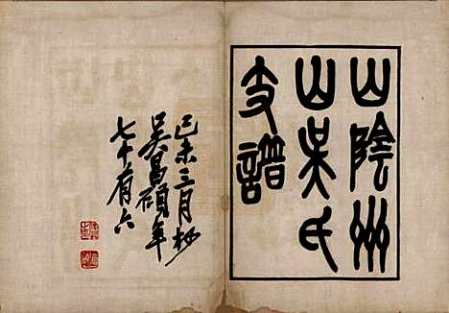 山陰州
山吳氏
支譜
己未三月杪
吳昌碩年
七十有六